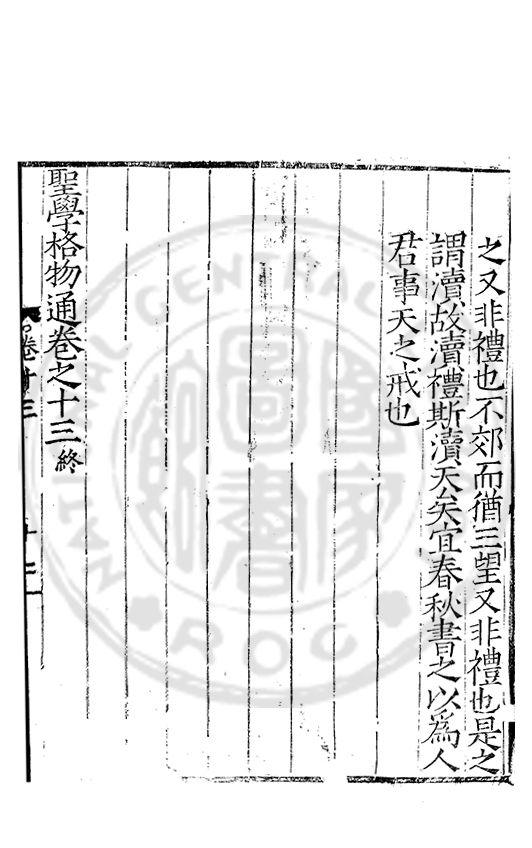 之又非禮也不郊而猶三望又非禮也是之
謂瀆故瀆禮斯瀆天矣宜春秋書之以爲人
君事天之戒也
聖學格物通卷之十三終
卷十三
十二
NATIONAL CENTRAL LIBRARY
R.O.C.
國家圖書館